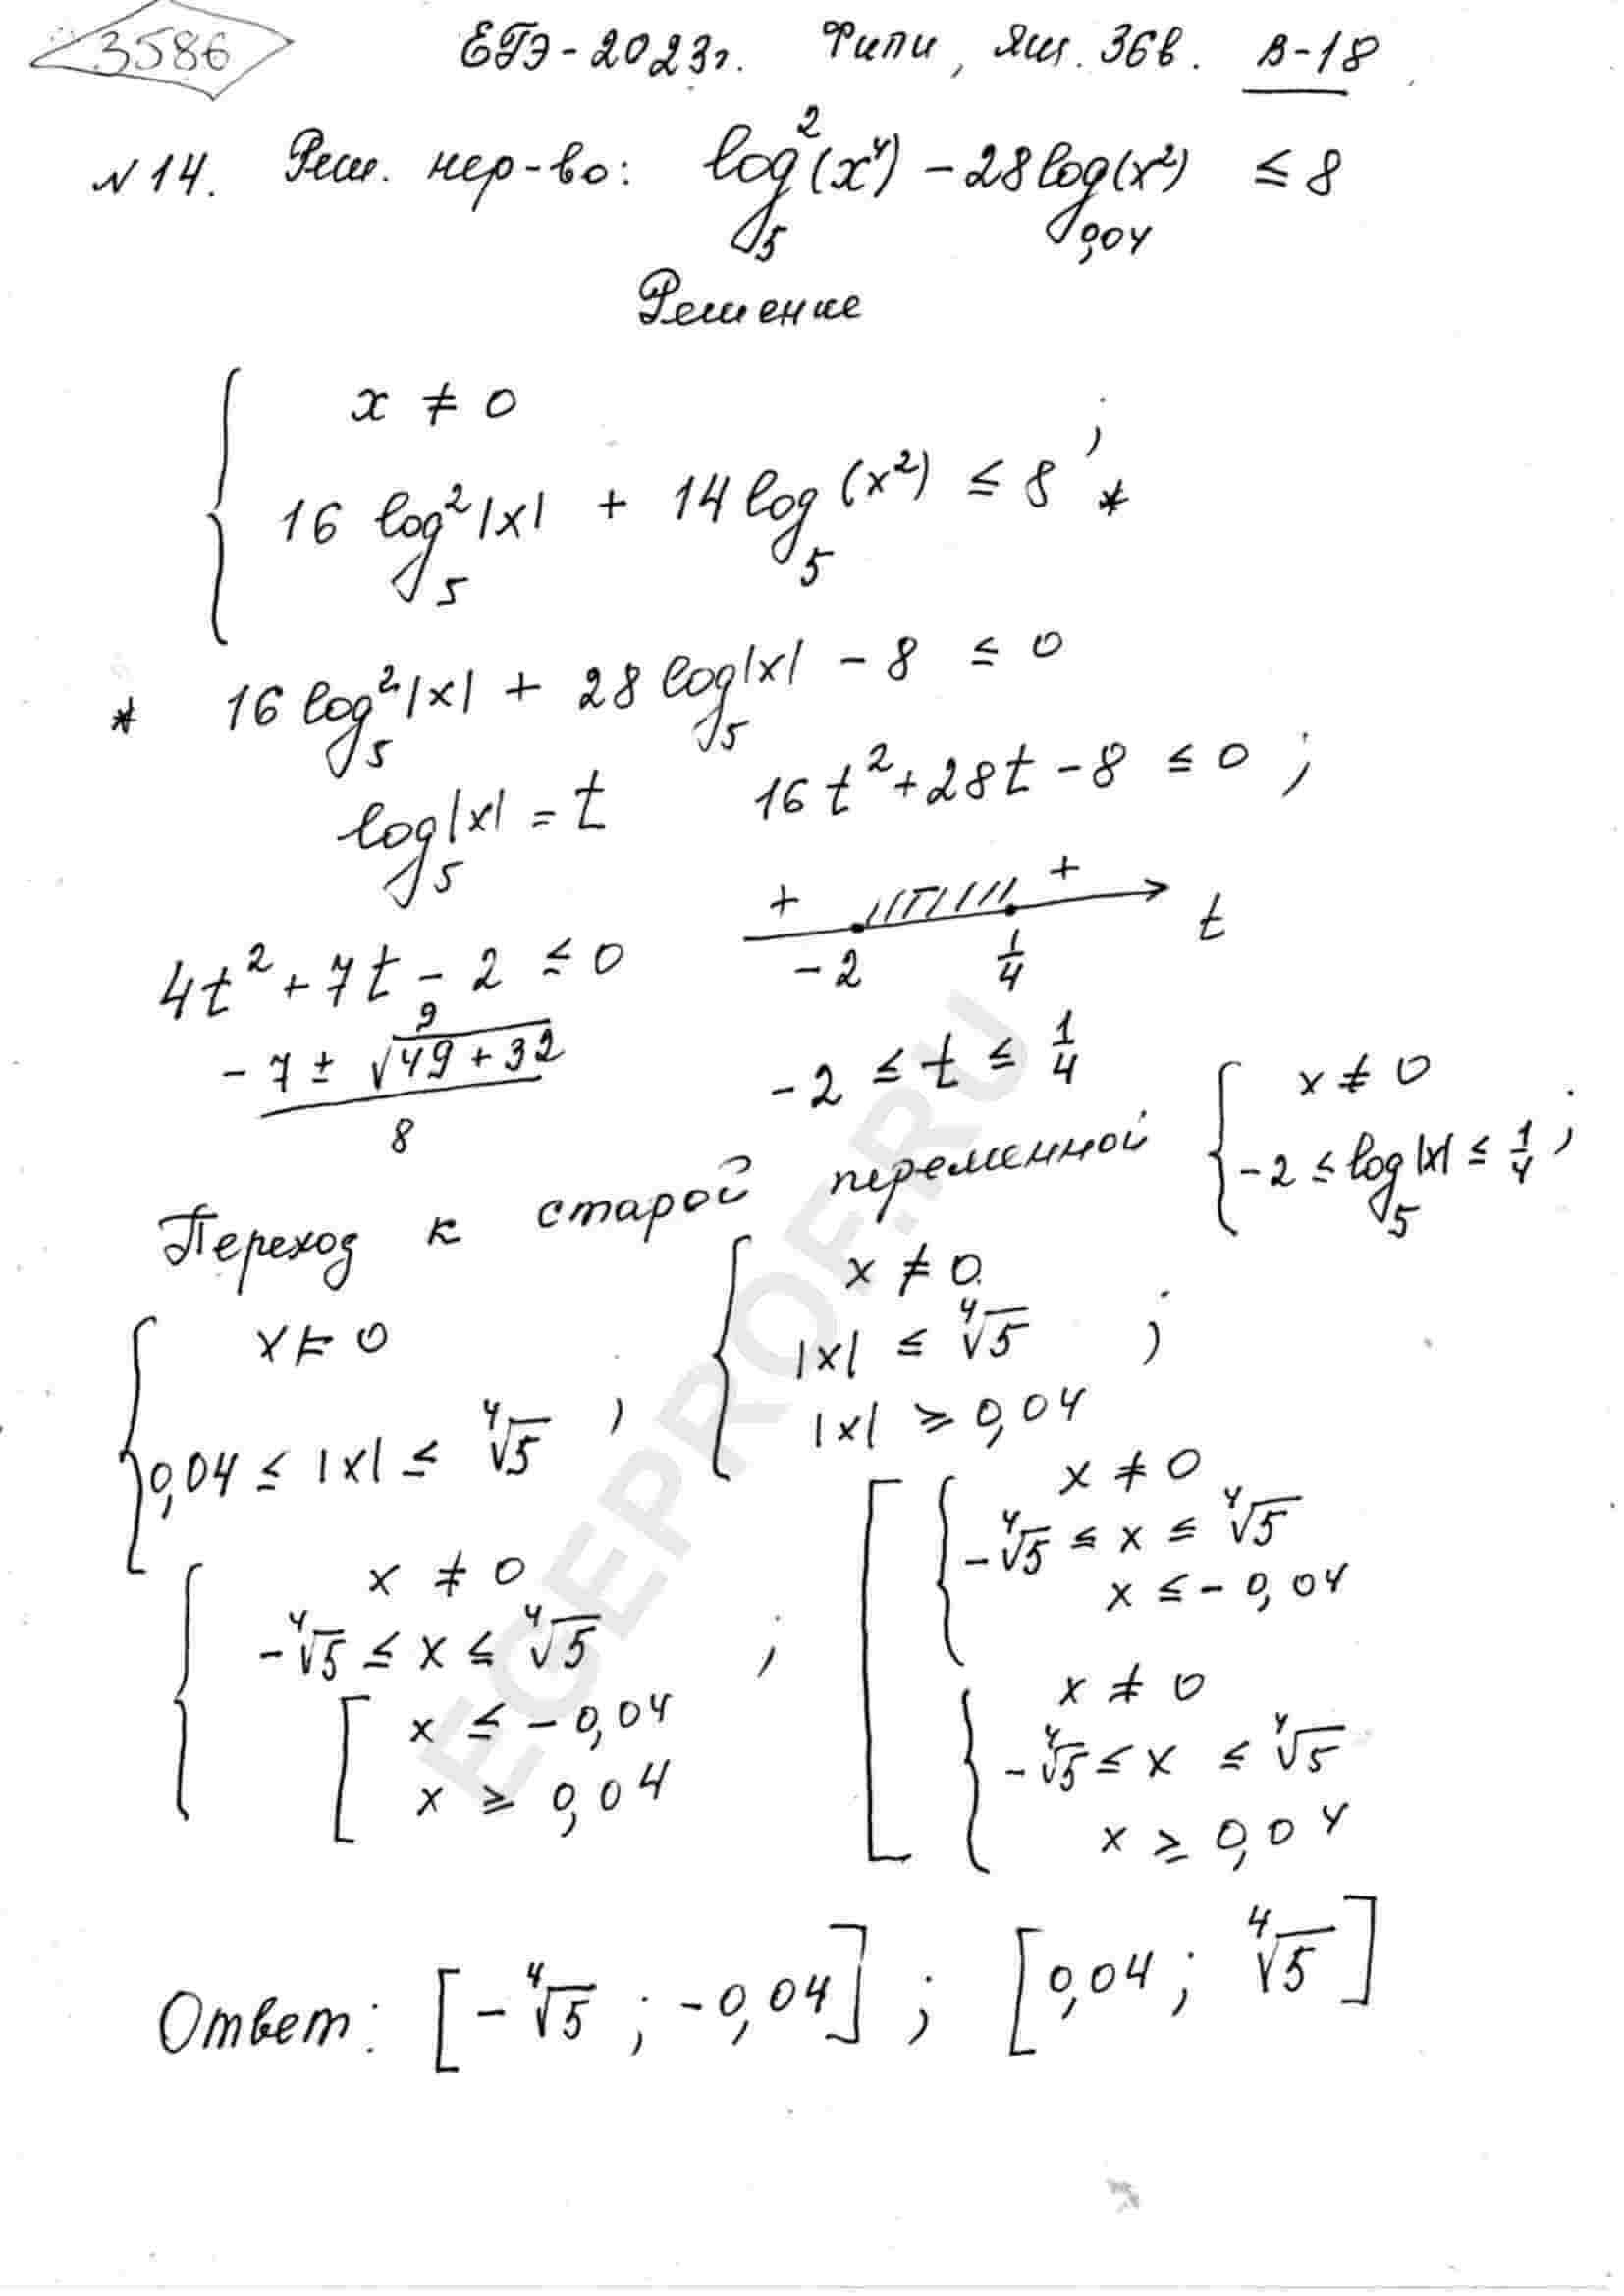 3586 ЕГЭ-2023г. Фипи, Ящ. 36в. В-18
№14. Реш. нер-во: log₅²(x⁴) - 28log₀,₀₄(x²) ≤ 8
Решение
{ x ≠ 0
16 log₅²|x| + 14 log₅(x²) ≤ 8 * ;
* 16 log₅²|x| + 28 log₅|x| - 8 ≤ 0
log₅|x| = t 16t² + 28t - 8 ≤ 0 ;
4t² + 7t - 2 ≤ 0
+ + t
-2 1/4
9
-7 ± √(49 + 32)
8
-2 ≤ t ≤ 1/4
Переход к старой переменной { x ≠ 0
-2 ≤ log₅|x| ≤ 1/4 ;
{ x ≠ 0
0,04 ≤ |x| ≤ ⁴√5 ;
{ x ≠ 0
|x| ≤ ⁴√5 ;
|x| ≥ 0,04
{ x ≠ 0
-⁴√5 ≤ x ≤ ⁴√5 ;
[ x ≤ -0,04
x ≥ 0,04
[ { x ≠ 0
-⁴√5 ≤ x ≤ ⁴√5
x ≤ -0,04
{ x ≠ 0
-⁴√5 ≤ x ≤ ⁴√5
x ≥ 0,04
Ответ: [-⁴√5 ; -0,04] ; [0,04 ; ⁴√5]
EGEPROF.RU